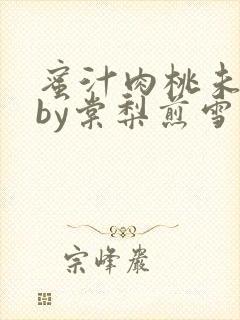 蜜汁肉桃未
by棠梨煎雪
宗峰岩